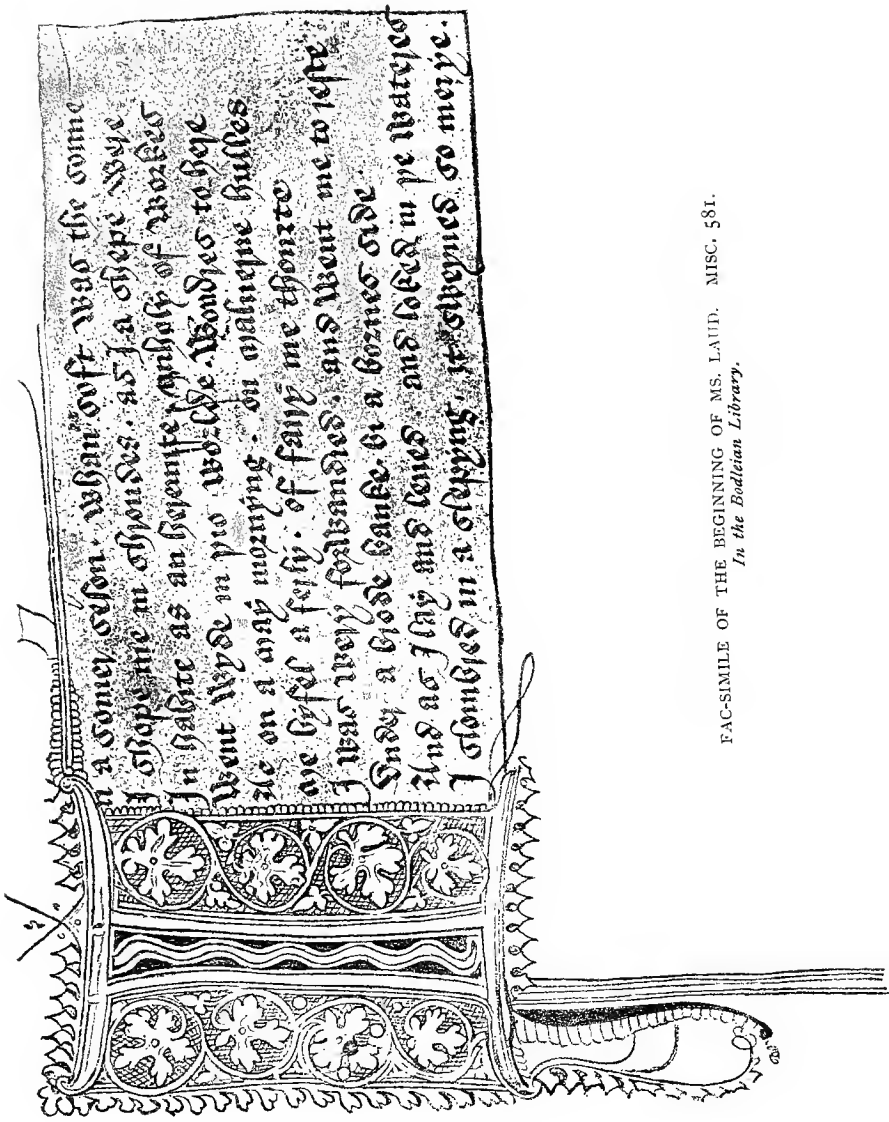 In a somer seson . whan soft was the sonne
I shope me in shroudes . as I a shepe were
In habite as an heremite vnholy of workes
Went wyde in þis world . wondres to here
Ac on a may mornyng . on maluerne hulles
Me byfel a ferly . of fairy me thouȝte
I was wery forwandred . and went me to reste
Vnder a brode banke . bi a bornes side .
And as I lay and lened . and loked in þe wateres
I slombred in a slepyng . it sweyued so merye .
FAC-SIMILE OF THE BEGINNING OF MS. LAUD. MISC. 581.
In the Bodleian Library.